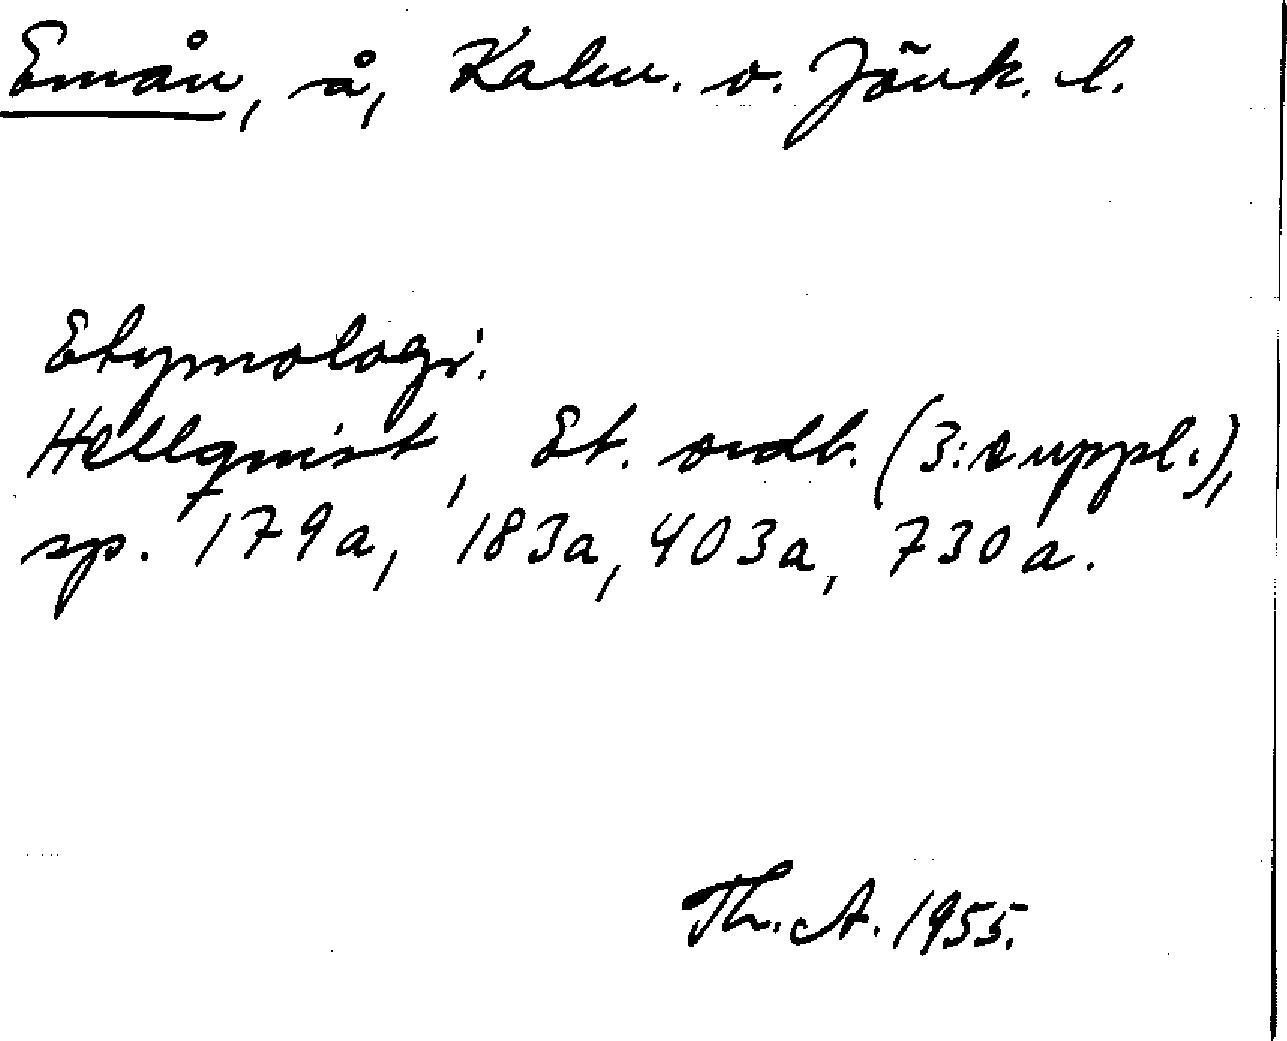 Emån, å, Kalm. o. Jönk. l.
Etymologi.
Hellquist, Et. ordb. (3: suppl.),
sp. 179a, 183a, 403a, 730a.
Th. A. 1955.